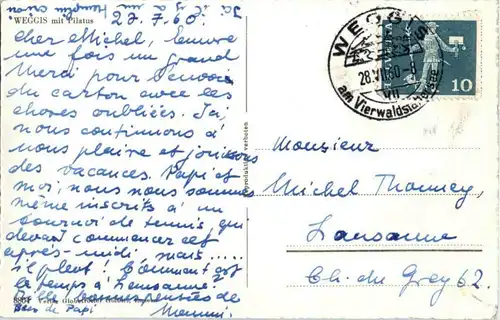 WEGGIS mit Pilatus
27.7.60.
Cher Michel, Encore
une fois un grand
Merci pour l'envoi
du carton avec les
choses oubliées. Ici,
nous continuons à
nous plaire et jouissons
des vacances. Papi et
moi, nous nous sommes
même inscrits à un
tournoi de tennis, qui
devait commencer cet
après-midi mais.....
il pleut! Comment est
le temps à Lausanne?
Bons baisers de Papi
Mammi.
WEGGIS
28.VII.60-8
VII
am Vierwaldstättersee
HELVETIA
10
Reproduktion verboten
Monsieur
Michel Thonney,
Lausanne
Ch. du Grey 62.